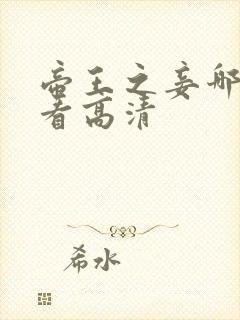 帝王之妾哪
看高清
希水